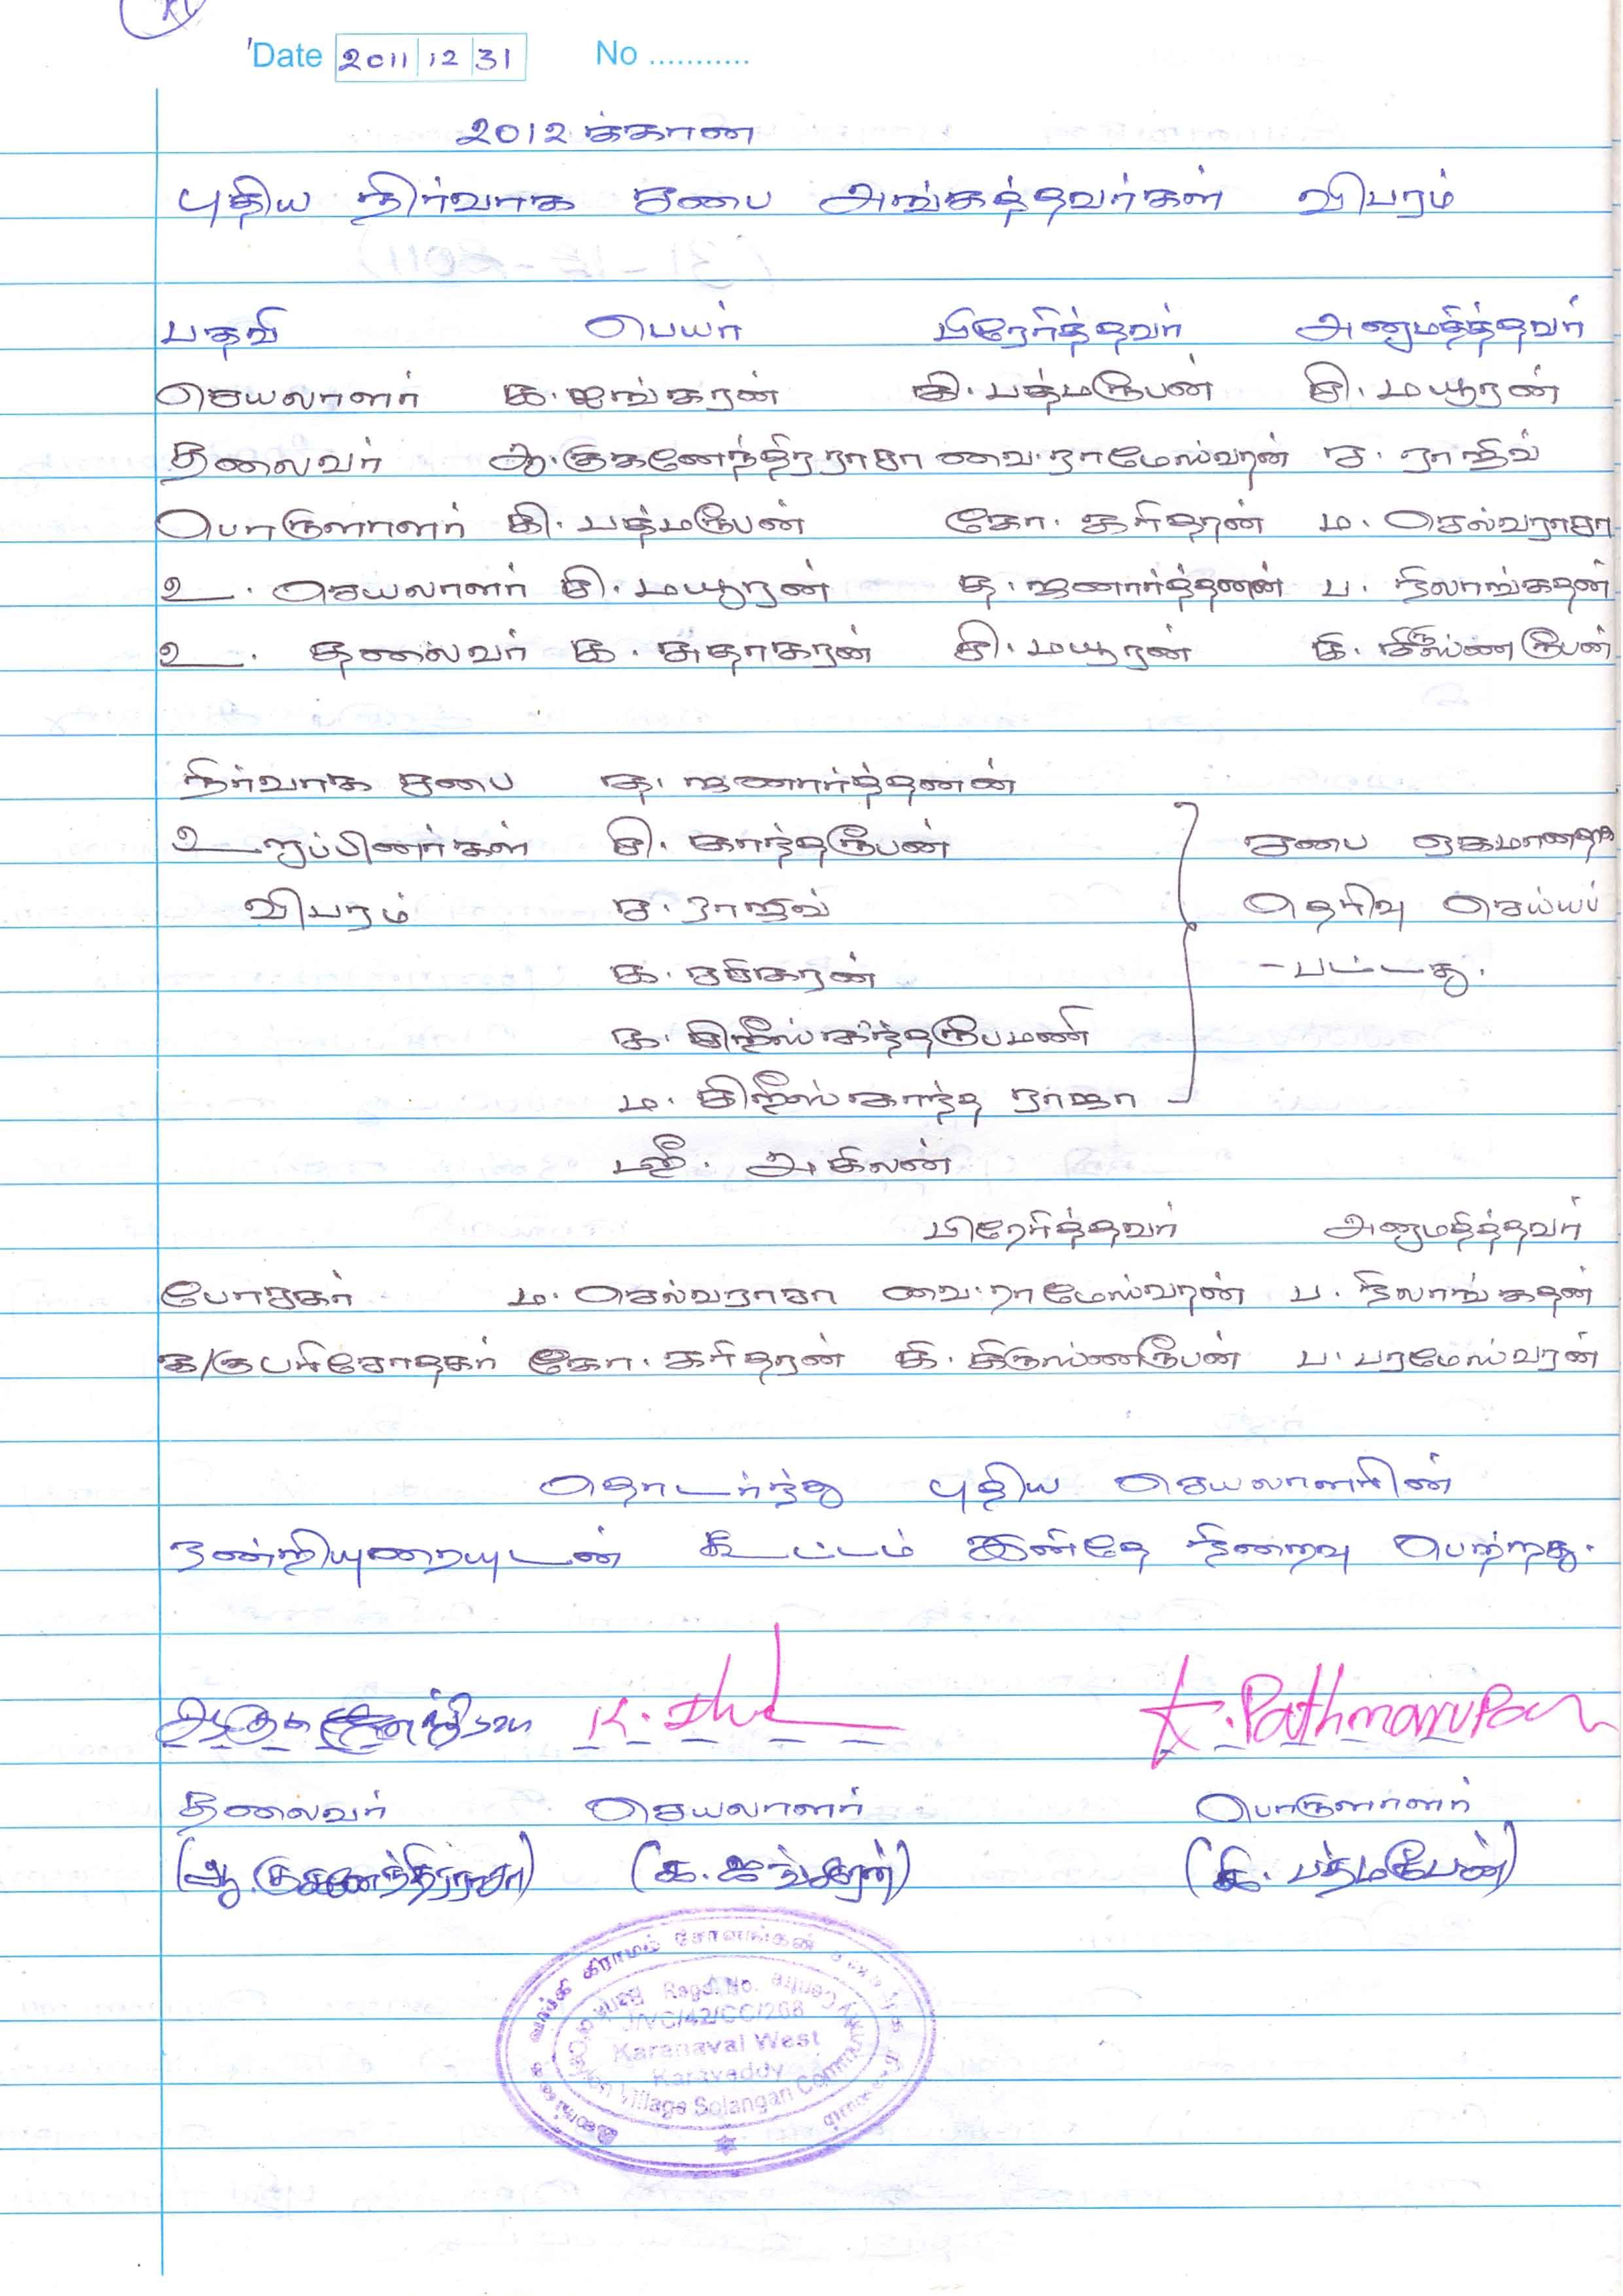 Date 2011 12 31 No ...........
2012 க்கான
புதிய நிர்வாக சபை அங்கத்தவர்கள் விபரம்
பதவி பெயர் பிரேரித்தவர் அனுமதித்தவர்
செயலாளர் க. ஐங்கரன் கி. பத்மரூபன் சி. மயூரன்
தலைவர் ஆ. குகனேந்திரராசா வை. ராமேஸ்வரன் ச. ராஜீவ்
பொருளாளர் கி. பத்மரூபன் கோ. கரிதரன் ம. செல்வராசா
உ. செயலாளர் சி. மயூரன் த. ஜனார்த்தனன் ப. நிலாங்கதன்
உ. தலைவர் க. சுதாகரன் சி. மயூரன் கி. கிருஸ்ணரூபன்
நிர்வாக சபை த. ஜனார்த்தனன்
உறுப்பினர்கள் சி. காந்தரூபன் சபை ஏகமானதாக
விபரம் ச. ராஜீவ் தெரிவு செய்யப்
க. சசிகரன் - பட்டது.
க. சிறீஸ்கந்தரூபமணி
ம. சிறீஸ்காந்த ராஜா
அகிலன்
பிரேரித்தவர் அனுமதித்தவர்
போசகர் ம. செல்வராசா வை. ராமேஸ்வரன் ப. நிலாங்கதன்
க/கு பரிசோதகர் கோ. கரிதரன் கி. கிருஸ்ணரூபன் ப. பரமேஸ்வரன்
தொடர்ந்து புதிய செயலாளரின்
நன்றியுரையுடன் கூட்டம் இனிதே நிறைவு பெற்றது.
K. Pathmarupan
தலைவர் செயலாளர் பொருளாளர்
(ஆ. குகனேந்திரராசா) (க. ஐங்கரன்) (கி. பத்மரூபன்)
கிராமம் சோலங்கன்
Regd. No.
J/VC/42/CC/268
Karanavai West
Karaveddy
Village Solangan Community Centre